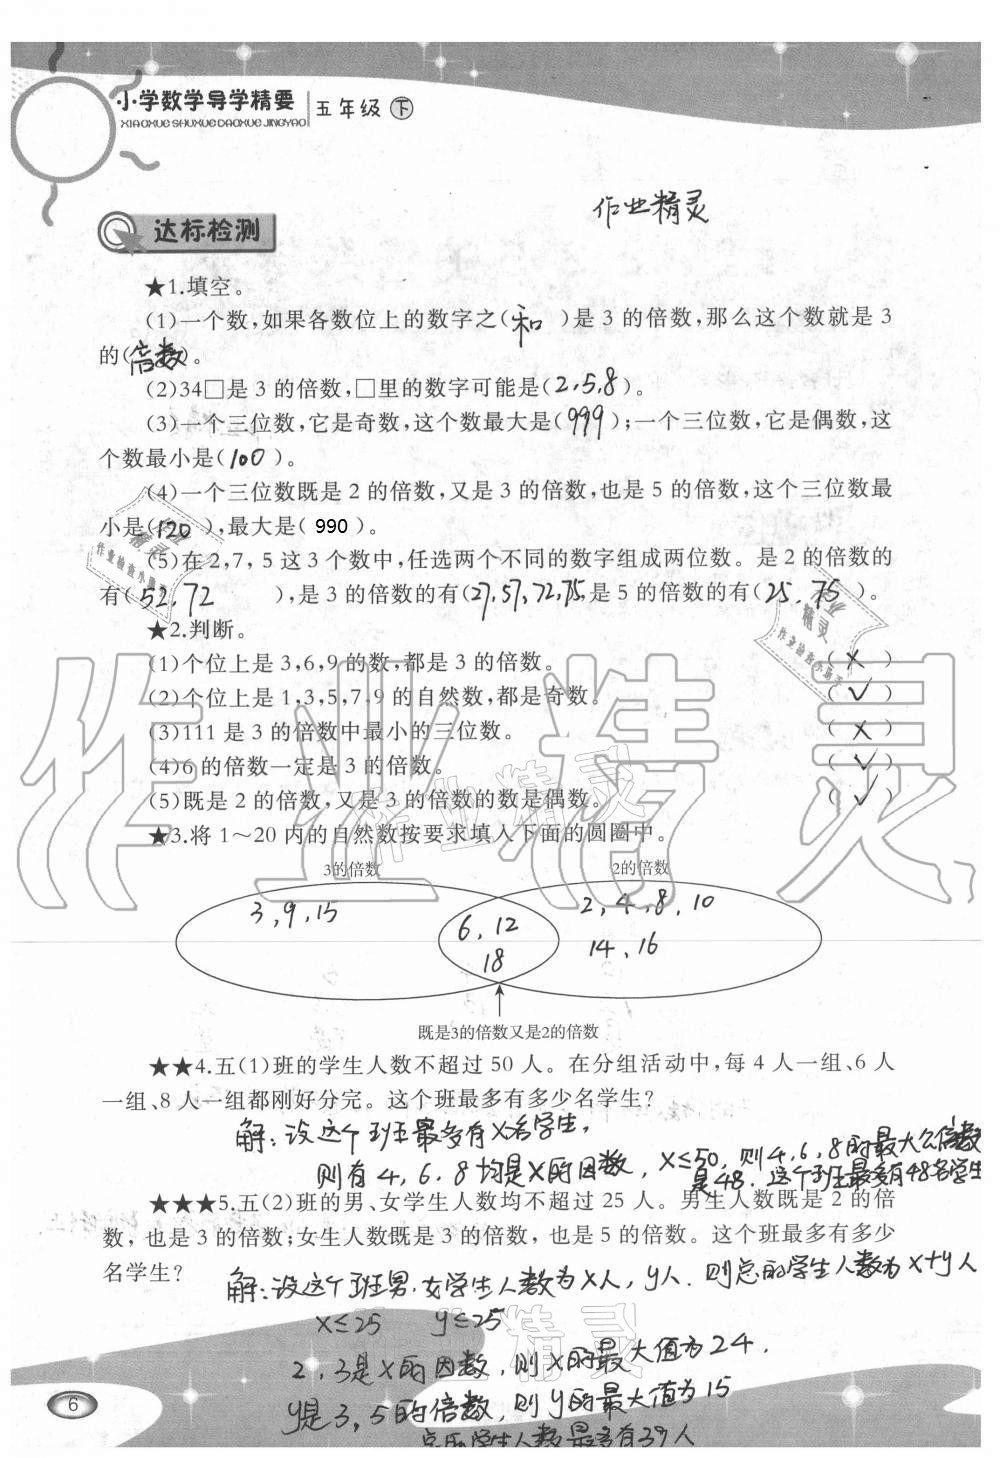 小学数学导学精要 五年级 下
XIAOXUE SHUXUE DAOXUE JINGYAO
作业精灵
达标检测
★1.填空。
(1)一个数,如果各数位上的数字之(和)是 3 的倍数,那么这个数就是 3
的(倍数)。
(2)34□是 3 的倍数,□里的数字可能是(2,5,8)。
(3)一个三位数,它是奇数,这个数最大是(999);一个三位数,它是偶数,这
个数最小是(100)。
(4)一个三位数既是 2 的倍数,又是 3 的倍数,也是 5 的倍数,这个三位数最
小是(120),最大是(990)。
(5)在 2,7,5 这 3 个数中,任选两个不同的数字组成两位数。是 2 的倍数的
有(52,72),是 3 的倍数的有(27,57,72,75,是 5 的倍数的有(25,75)。
★2.判断。
(1)个位上是 3,6,9 的数,都是 3 的倍数。 (×)
(2)个位上是 1,3,5,7,9 的自然数,都是奇数。 (✓)
(3)111 是 3 的倍数中最小的三位数。 (×)
(4)6 的倍数一定是 3 的倍数。 (✓)
(5)既是 2 的倍数,又是 3 的倍数的数是偶数。 (✓)
★3.将 1～20 内的自然数按要求填入下面的圆圈中。
3的倍数 2的倍数
3,9,15 6,12 2,4,8,10
18 14,16
既是3的倍数又是2的倍数
★★4.五(1)班的学生人数不超过 50 人。在分组活动中,每 4 人一组、6 人
一组、8 人一组都刚好分完。这个班最多有多少名学生?
解:设这个班最多有x名学生,
则有4,6,8均是x的因数,x≤50,则4,6,8的最大公倍数
是48.这个班最多有48名学生
★★★5.五(2)班的男、女学生人数均不超过 25 人。男生人数既是 2 的倍
数,也是 3 的倍数;女生人数既是 3 的倍数,也是 5 的倍数。这个班最多有多少
名学生?
解:设这个班男,女学生人数为x人,y人.则总的学生人数为x+y人
x≤25 y≤25
2,3是x的因数,则x的最大值为24.
y是3,5的倍数,则y的最大值为15
学生人数最多有39人
6
作业精灵
作业精灵
作业精灵